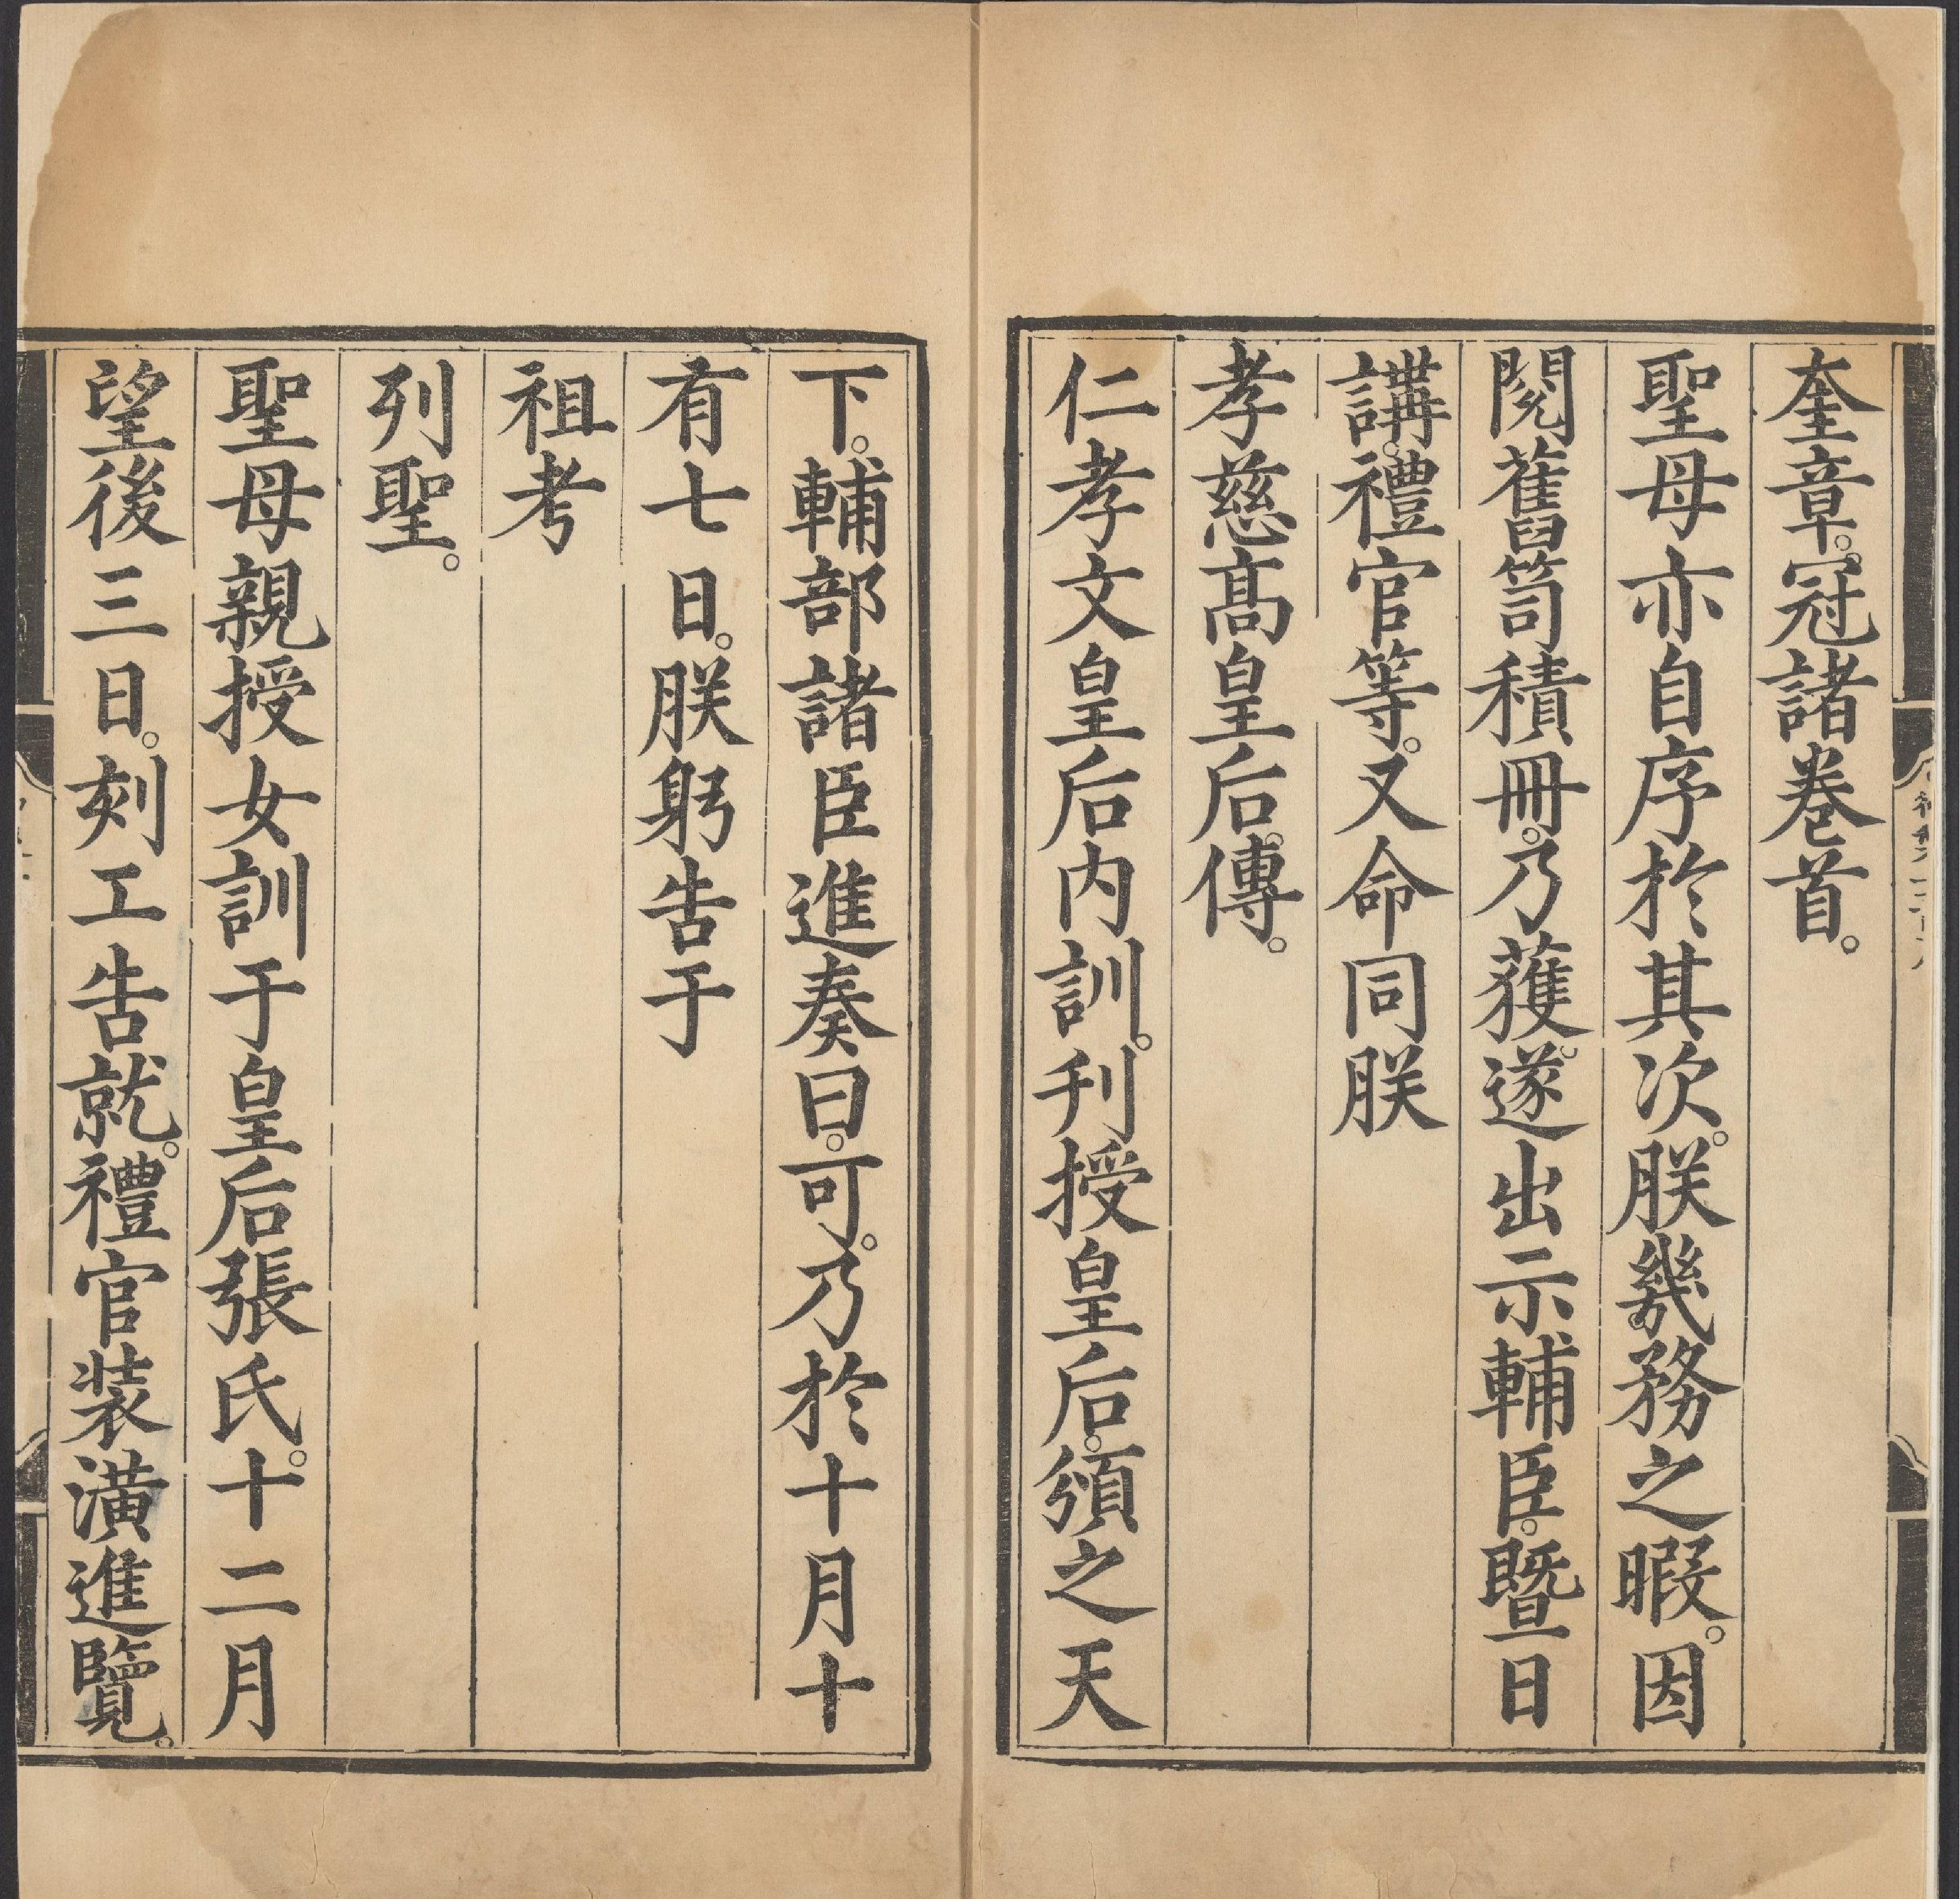 奎章。冠諸卷首。
聖母亦自序於其次。朕幾務之暇。因
閱舊笥積冊。乃獲。遂出示輔臣。暨日
講。禮官等。又命同朕
孝慈高皇后。傳。
仁孝文皇后內訓。刊授皇后。頒之天
下。輔部諸臣進奏曰。可。乃於十月十
有七日。朕躬告于
祖考
列聖。
聖母親授女訓于皇后張氏。十二月
望後三日。刻工告就。禮官裝潢進覽。